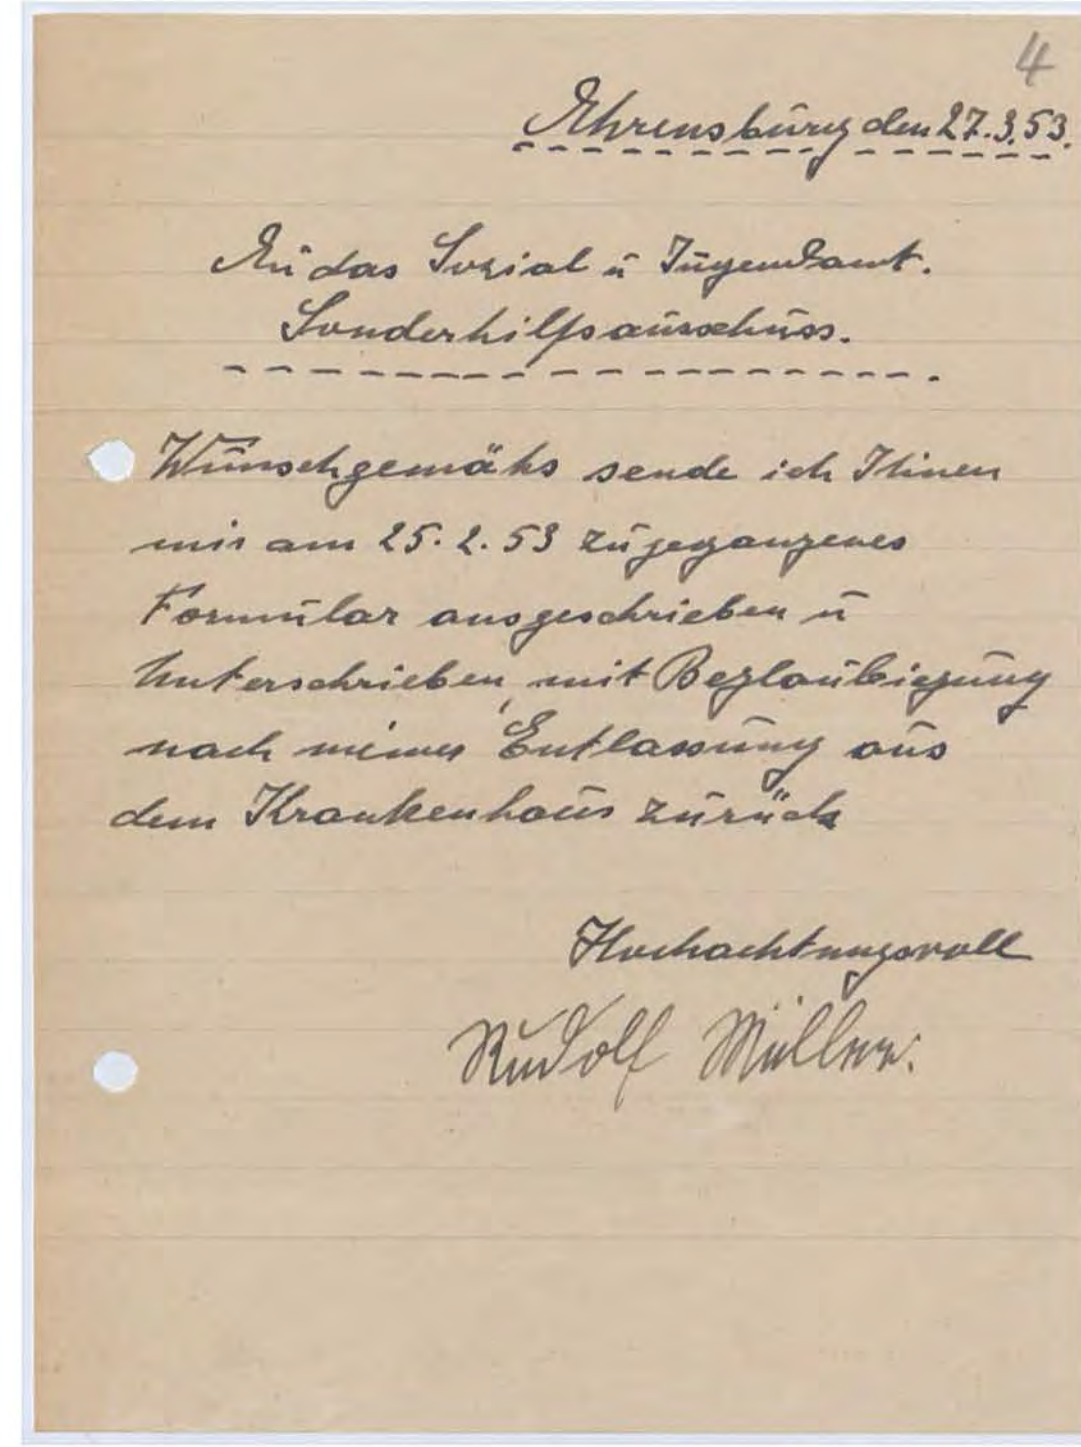 4
Ahrensburg den 27.3.53.
An das Sozial u Jugendamt.
Sonderhilfsausschuss.
Wunschgemähs sende ich Ihnen
mir am 25.2.53 zugegangenes
Formular ausgeschrieben u
Unterschrieben, mit Beglaubigung
nach meiner Entlassung aus
dem Krankenhaus zurück
Hochachtungsvoll
Rudolf Müller.